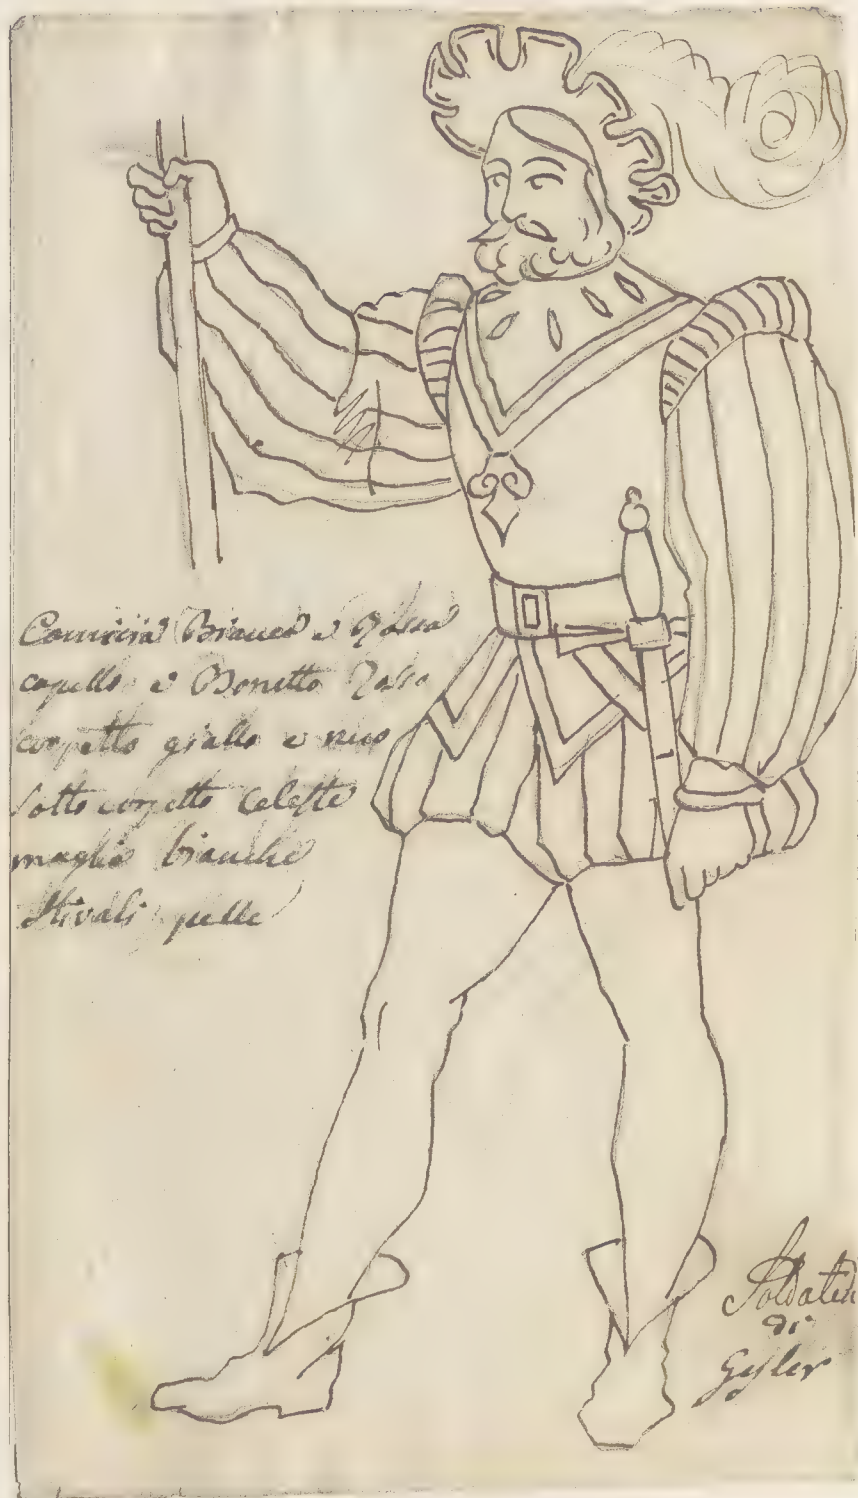 Camicia Bianca e Rossa
capello e Bonetto Rosso
corpetto giallo e nero
sotto corpetto celeste
maglie bianche
Stivali pelle
Soldati
di
Gesler